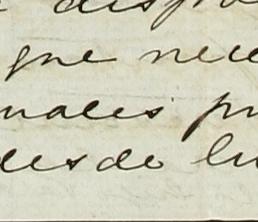 dispo
que nece
nales pr
desde lu